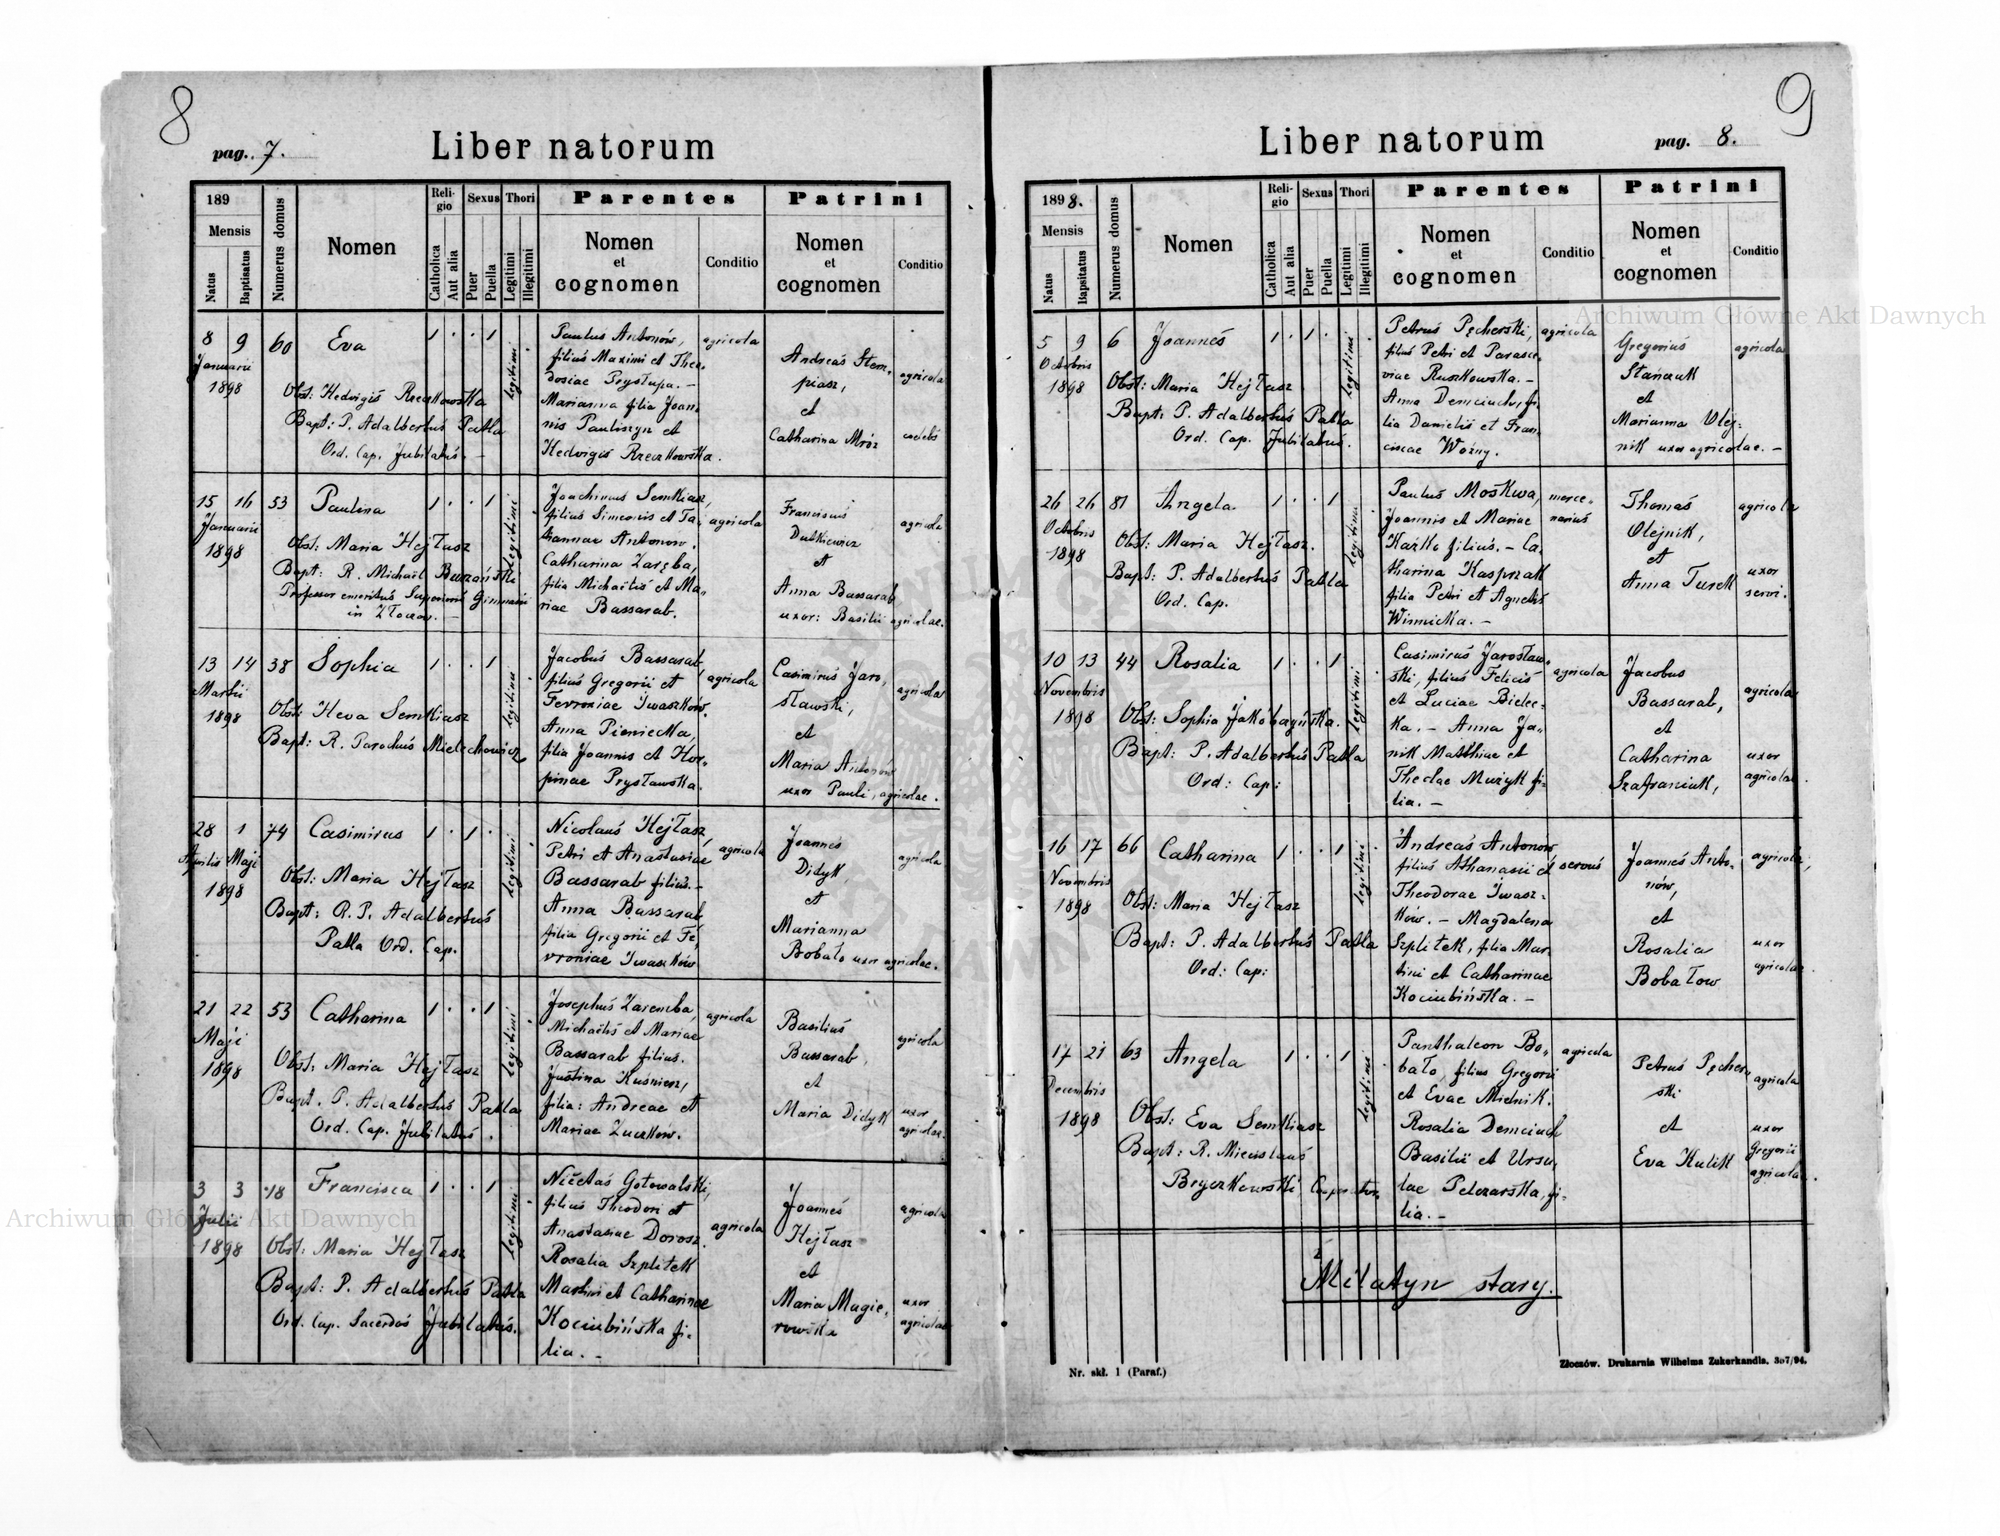 8
pag. 7.
Liber natorum
189
Mensis
Natus
Baptisatus
Numerus domus
Nomen
Religio
Catholica
Aut alia
Sexus
Puer
Puella
Thori
Legitimi
Illegitimi
Parentes
Nomen
et
cognomen
Conditio
Patrini
Nomen
et
cognomen
Conditio
8 9 60 Eva 1 . . 1 legitimi
Januarii
1898
Obst: Hedvigis Rzeczkowska
Bapt: P. Adalbertus Patla
Ord. Cap. Jubilatus. -
Paulus Antonów,
filius Maximi et Theo-
dosiae Prystupa. -
Marianna filia Joan-
nis Pauliszyn et
Hedvigis Rzeczkowska.
agricola
Andreas Stem-
piasz,
et
Catharina Mróz
agricola
caelebs
15 16 53 Paulina 1 . . 1 legitimi
Januarii
1898
Obst: Maria Hejłasz
Bapt: R. Michaël Buszański
Professor emeritus Superioris Gimnasii
in Złoczow. -
Joachimus Semkiasz,
filius Simeonis et Ta-
tiannae Antonow.
Catharina Zaręba,
filia Michaëlis et Ma-
riae Bassarab.
agricola
Franciscus
Dutkiewicz
et
Anna Bassarab
uxor: Basilii agricolae.
agricola
13 14 38 Sophia 1 . . 1 legitimi
Martii
1898
Obst: Heva Semkiasz
Bapt: R. Parochus Mielechowicz
Jacobus Bassarab,
filius Gregorii et
Fevroniae Iwaszków.
Anna Pieniecka,
filia Joannis et Hor-
pinae Prysławska.
agricola
Casimirus Jaro-
sławski,
et
Maria Antonów
uxor Pauli, agricolae.
agricola
28 1 74 Casimirus 1 . 1 . legitimi
Aprilis Maji
1898
Obst: Maria Hejłasz
Bapt: R. P. Adalbertus
Patla Ord. Cap.
Nicolaus Hejłasz,
Petri et Anastasiae
Bassarab filius. -
Anna Bassarab
filia Gregorii et Fe-
vroniae Iwaszków
agricola
Joannes
Didyk,
et
Marianna
Bobało uxor agricolae.
agricola
21 22 53 Catharina 1 . . 1 legitimi
Maji
1898
Obst: Maria Hejłasz
Bapt. P. Adalbertus Patla
Ord. Cap. Jubilatus.
Josephus Zaremba,
Michaëlis et Mariae
Bassarab filius.
Justina Kuśnierz,
filia: Andreae et
Mariae Zuczków.
agricola
Basilius
Bassarab,
et
Maria Didyk
agricola
uxor
agricolae.
3 3 18 Francisca 1 . . 1 legitimi
Julii
1898
Obst: Maria Hejłasz
Bapt: P. Adalbertus Patla
Ord. Cap. Sacerdos Jubilatus.
Nicetas Gotowalski,
filius Theodori et
Anastasiae Dorosz.
Rosalia Szplitek
Martini et Catharinae
Kociubińska fi-
lia. -
agricola
Joannes
Hejłasz
et
Maria Magie-
rowska
agricola
uxor
agricolae
9
Liber natorum
pag. 8.
1898.
Mensis
Natus
Baptisatus
Numerus domus
Nomen
Religio
Catholica
Aut alia
Sexus
Puer
Puella
Thori
Legitimi
Illegitimi
Parentes
Nomen
et
cognomen
Conditio
Patrini
Nomen
et
cognomen
Conditio
5 9 6 Joannes 1 . 1 . legitimi
Octobris
1898
Obst: Maria Hejłasz
Bapt: P. Adalbertus Patla
Ord. Cap. Jubilatus.
Petrus Pęcherski,
filius Petri et Parasce-
viae Ruszkowska. -
Anna Demciuch, fi-
lia Danielis et Fran-
ciscae Woźny.
agricola
Gregorius
Stańczuk
et
Marianna Olej-
nik uxor agricolae. -
agricola
26 26 81 Angela 1 . . 1 legitimi
Octobris
1898
Obst: Maria Hejłasz.
Bapt: P. Adalbertus Patla
Ord. Cap.
Paulus Moskwa,
Joannis et Mariae
Kaźko filius. - Ca-
tharina Kasprzak
filia Petri et Agnetis
Winnicka. -
merce-
narius
Thomas
Olejnik,
et
Anna Turek
agricola
uxor
servi.
10 13 44 Rosalia 1 . . 1 legitimi
Novembris
1898
Obst: Sophia Jakóbczyńska.
Bapt: P. Adalbertus Patla
Ord: Cap:
Casimirus Jarosław-
ski, filius Felicis
et Luciae Bielec-
ka. - Anna Ja-
nik Matthiae et
Theclae Mużyk fi-
lia. -
agricola
Jacobus
Bassarab,
et
Catharina
Szafraniuk,
agricola
uxor
agricolae.
16 17 66 Catharina 1 . . 1 legitimi
Novembris
1898
Obst: Maria Hejłasz
Bapt: P. Adalbertus Patla
Ord: Cap:
Andreas Antonów
filius Athanasii et
Theodorae Iwasz-
ków. - Magdalena
Szplitek, filia Mar-
tini et Catharinae
Kociubińska. -
servus
Joannes Anto-
nów,
et
Rosalia
Bobałow
agricola,
uxor
agricolae.
17 21 63 Angela 1 . . 1 legitimi
Decembris
1898
Obst: Eva Semkiasz
Bapt: R. Miecislaus
Bryczkowski Cooperator
Panthaleon Bo-
bało, filius Gregorii
et Evae Mielnik.
Rosalia Demciuch
Basilii et Ursu-
lae Pelczarska, fi-
lia. -
agricola
Petrus Pęcher-
ski
et
Eva Kulik
agricola
uxor
Gregorii
agricolae.
Milatyn stary.
Nr. skł. 1 (Paraf.)
Złoczów. Drukarnia Wilhelma Zukerkandla. 307/94.
Archiwum Główne Akt Dawnych
Archiwum Główne Akt Dawnych